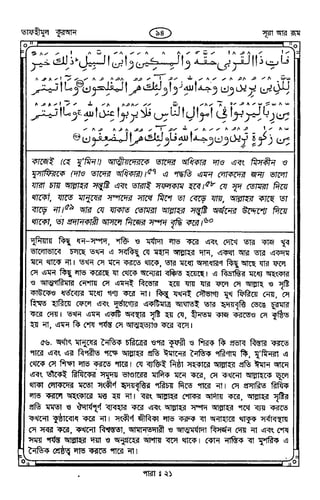 তাফহীমুল কুরআন
৯৪
সূরা আর রূম
فَاٰتِ ذَا الْقُرْبٰى حَقَّهٗ وَالْمِسْكِيْنَ وَابْنَ السَّبِيْلِ ؕ ذٰلِكَ خَيْرٌ
لِّلَّذِيْنَ يُرِيْدُوْنَ وَجْهَ اللّٰهِ وَاُولٰٓئِكَ هُمُ الْمُفْلِحُوْنَ ۞ وَمَاۤ اٰتَيْتُمْ
مِّنْ رِّبًا لِّيَرْبُوَا۟ فِيْۤ اَمْوَالِ النَّاسِ فَلَا يَرْبُوْا عِنْدَ اللّٰهِ ۚ وَمَاۤ اٰتَيْتُمْ
مِّنْ زَكٰوةٍ تُرِيْدُوْنَ وَجْهَ اللّٰهِ فَاُولٰٓئِكَ هُمُ الْمُضْعِفُوْنَ ۞
কাজেই (হে মু'মিন!) আত্মীয়দেরকে তাদের অধিকার দাও এবং মিসকীন ও
মুসাফিরকে (দাও তাদের অধিকার)।৫৭ এ পদ্ধতি এমন লোকদের জন্য ভালো
যারা চায় আল্লাহর সন্তুষ্টি এবং তারাই সফলকাম হবে।৫৮ যে সূদ তোমরা দিয়ে
থাকো, যাতে মানুষের সম্পদের সাথে মিশে তা বেড়ে যায়, আল্লাহর কাছে তা
বাড়ে না।৫৯ আর যে যাকাত তোমরা আল্লাহর সন্তুষ্টি অর্জনের উদ্দেশ্যে দিয়ে
থাকো, তা প্রদানকারী আসলে নিজের সম্পদ বৃদ্ধি করে।৬০
দুনিয়ায় কিছু ধন-সম্পদ, শক্তি ও মর্যাদা লাভ করে এবং দেখে তার কাজ খুব
ভালোভাবে চলছে তখন এ সবকিছু যে মহান আল্লাহর দান, একথা আর তার একদম
মনে থাকে না। তখন সে মনে করতে থাকে, তার মধ্যে অসাধারণ কিছু আছে যার ফলে
সে এমন কিছু লাভ করেছে যা থেকে অন্যেরা বঞ্চিত হয়েছে। এ বিভ্রান্তির মধ্যে অহংকার
ও আত্মগরিমার নেশায় সে এমনই বিভোর হয়ে যায় যার ফলে সে আল্লাহ ও সৃষ্টি
কাউকেও ধর্তব্যের মধ্যে গণ্য করে না। কিন্তু যখনই সৌভাগ্য মুখ ফিরিয়ে নেয়, সে
হিম্মত হারিয়ে ফেলে এবং দুর্ভাগ্যের একটিমাত্র আঘাতই তার হৃদয়বৃত্তি ভেঙে চুরমার
করে দেয়। তখন এমন একটি অবস্থার সৃষ্টি হয় যে, হীনতম কাজ করতেও সে কুণ্ঠিত
হয় না, এমন কি শেষ পর্যন্ত সে আত্মহত্যাও করে বসে।
৫৬. অর্থাৎ মানুষের নৈতিক চরিত্রের ওপর কুফরী ও শির্ক কি প্রভাব বিস্তার করতে
পারে এবং এর বিপরীত পক্ষে আল্লাহর প্রতি ঈমানের নৈতিক পরিণাম কি, মু'মিনরা এ
থেকে সে শিক্ষা লাভ করতে পারে। যে ব্যক্তিই নিষ্ঠা সহকারে আল্লাহর প্রতি ঈমান আনে
এবং তাঁকেই রিযিকের সমুদয় ভাণ্ডারের মালিক মনে করে, সে কখনো আল্লাহকে ভুলে
থাকা লোকদের মতো সংকীর্ণ হৃদয়বৃত্তির পরিচয় দিতে পারে না। সে প্রসারিত রিযিক
লাভ করলে অহংকারে মত্ত হয় না। বরং আল্লাহর শোকর আদায় করে, আল্লাহর সৃষ্টির
প্রতি মমতা ও ঔদার্যপূর্ণ ব্যবহার করে এবং আল্লাহর সম্পদ আল্লাহর পথে ব্যয় করতে
কখনো কুণ্ঠাবোধ করে না। সংকীর্ণ জীবিকা লাভ করুক বা অনাহারে থাকুক সর্বাবস্থায়
সে সবর করে, কখনো বিশ্বস্ততা, আমানতদারী ও আত্মমর্যাদা বিসর্জন দেয় না এবং শেষ
সময় পর্যন্ত আল্লাহর দয়া ও অনুগ্রহের আশায় বসে থাকে। কোন নাস্তিক বা মুশরিক এ
নৈতিক শ্রেষ্ঠত্ব লাভ করতে পারে না।
পারা ঃ ২১